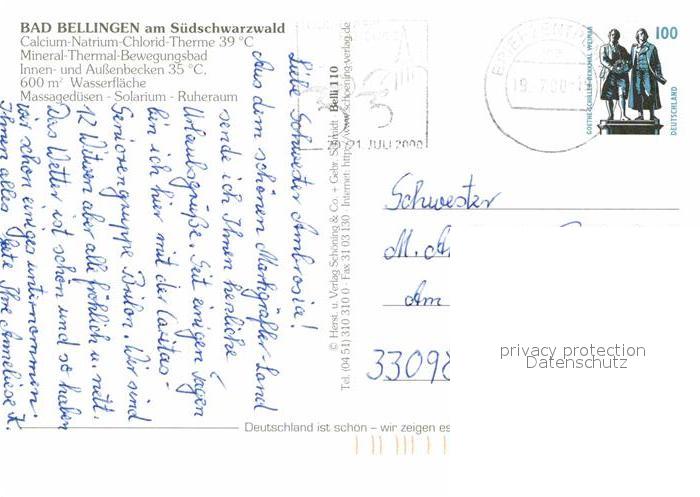 BAD BELLINGEN am Südschwarzwald
Calcium-Natrium-Chlorid-Therme 39 °C
Mineral-Thermal-Bewegungsbad
Innen- und Außenbecken 35 °C,
600 m² Wasserfläche
Massagedüsen - Solarium - Ruheraum
Liebe Schwester Ambrosia!
Aus dem schönen Markgräfler-Land
sende ich Ihnen herzliche
Urlaubsgrüße. Seit einigen Tagen
bin ich hier mit der Caritas-
Seniorengruppe Brilon. Wir sind
12 Witwen aber alle fröhlich u. nett.
Das Wetter ist schön und so haben
wir schon einiges unternommen.
Ihnen alles Gute Ihre Anneliese K.
© Herst. u. Verlag Schöning & Co. + Gebr. Schmidt Belli 110
Tel. (04 51) 310 310 0 · Fax 31 03 130 · Internet: http://www.schoening-verlag.de
21 JULI 2000
BRIEFZENTRUM
19.7.00
100
GOETHE-SCHILLER-DENKMAL WEIMAR
DEUTSCHLAND
Schwester
M. A
Am
33098
privacy protection
Datenschutz
Deutschland ist schön – wir zeigen es